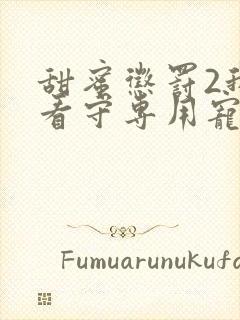 甜蜜懲罰2我
看守專用寵
Fumuarunukufa